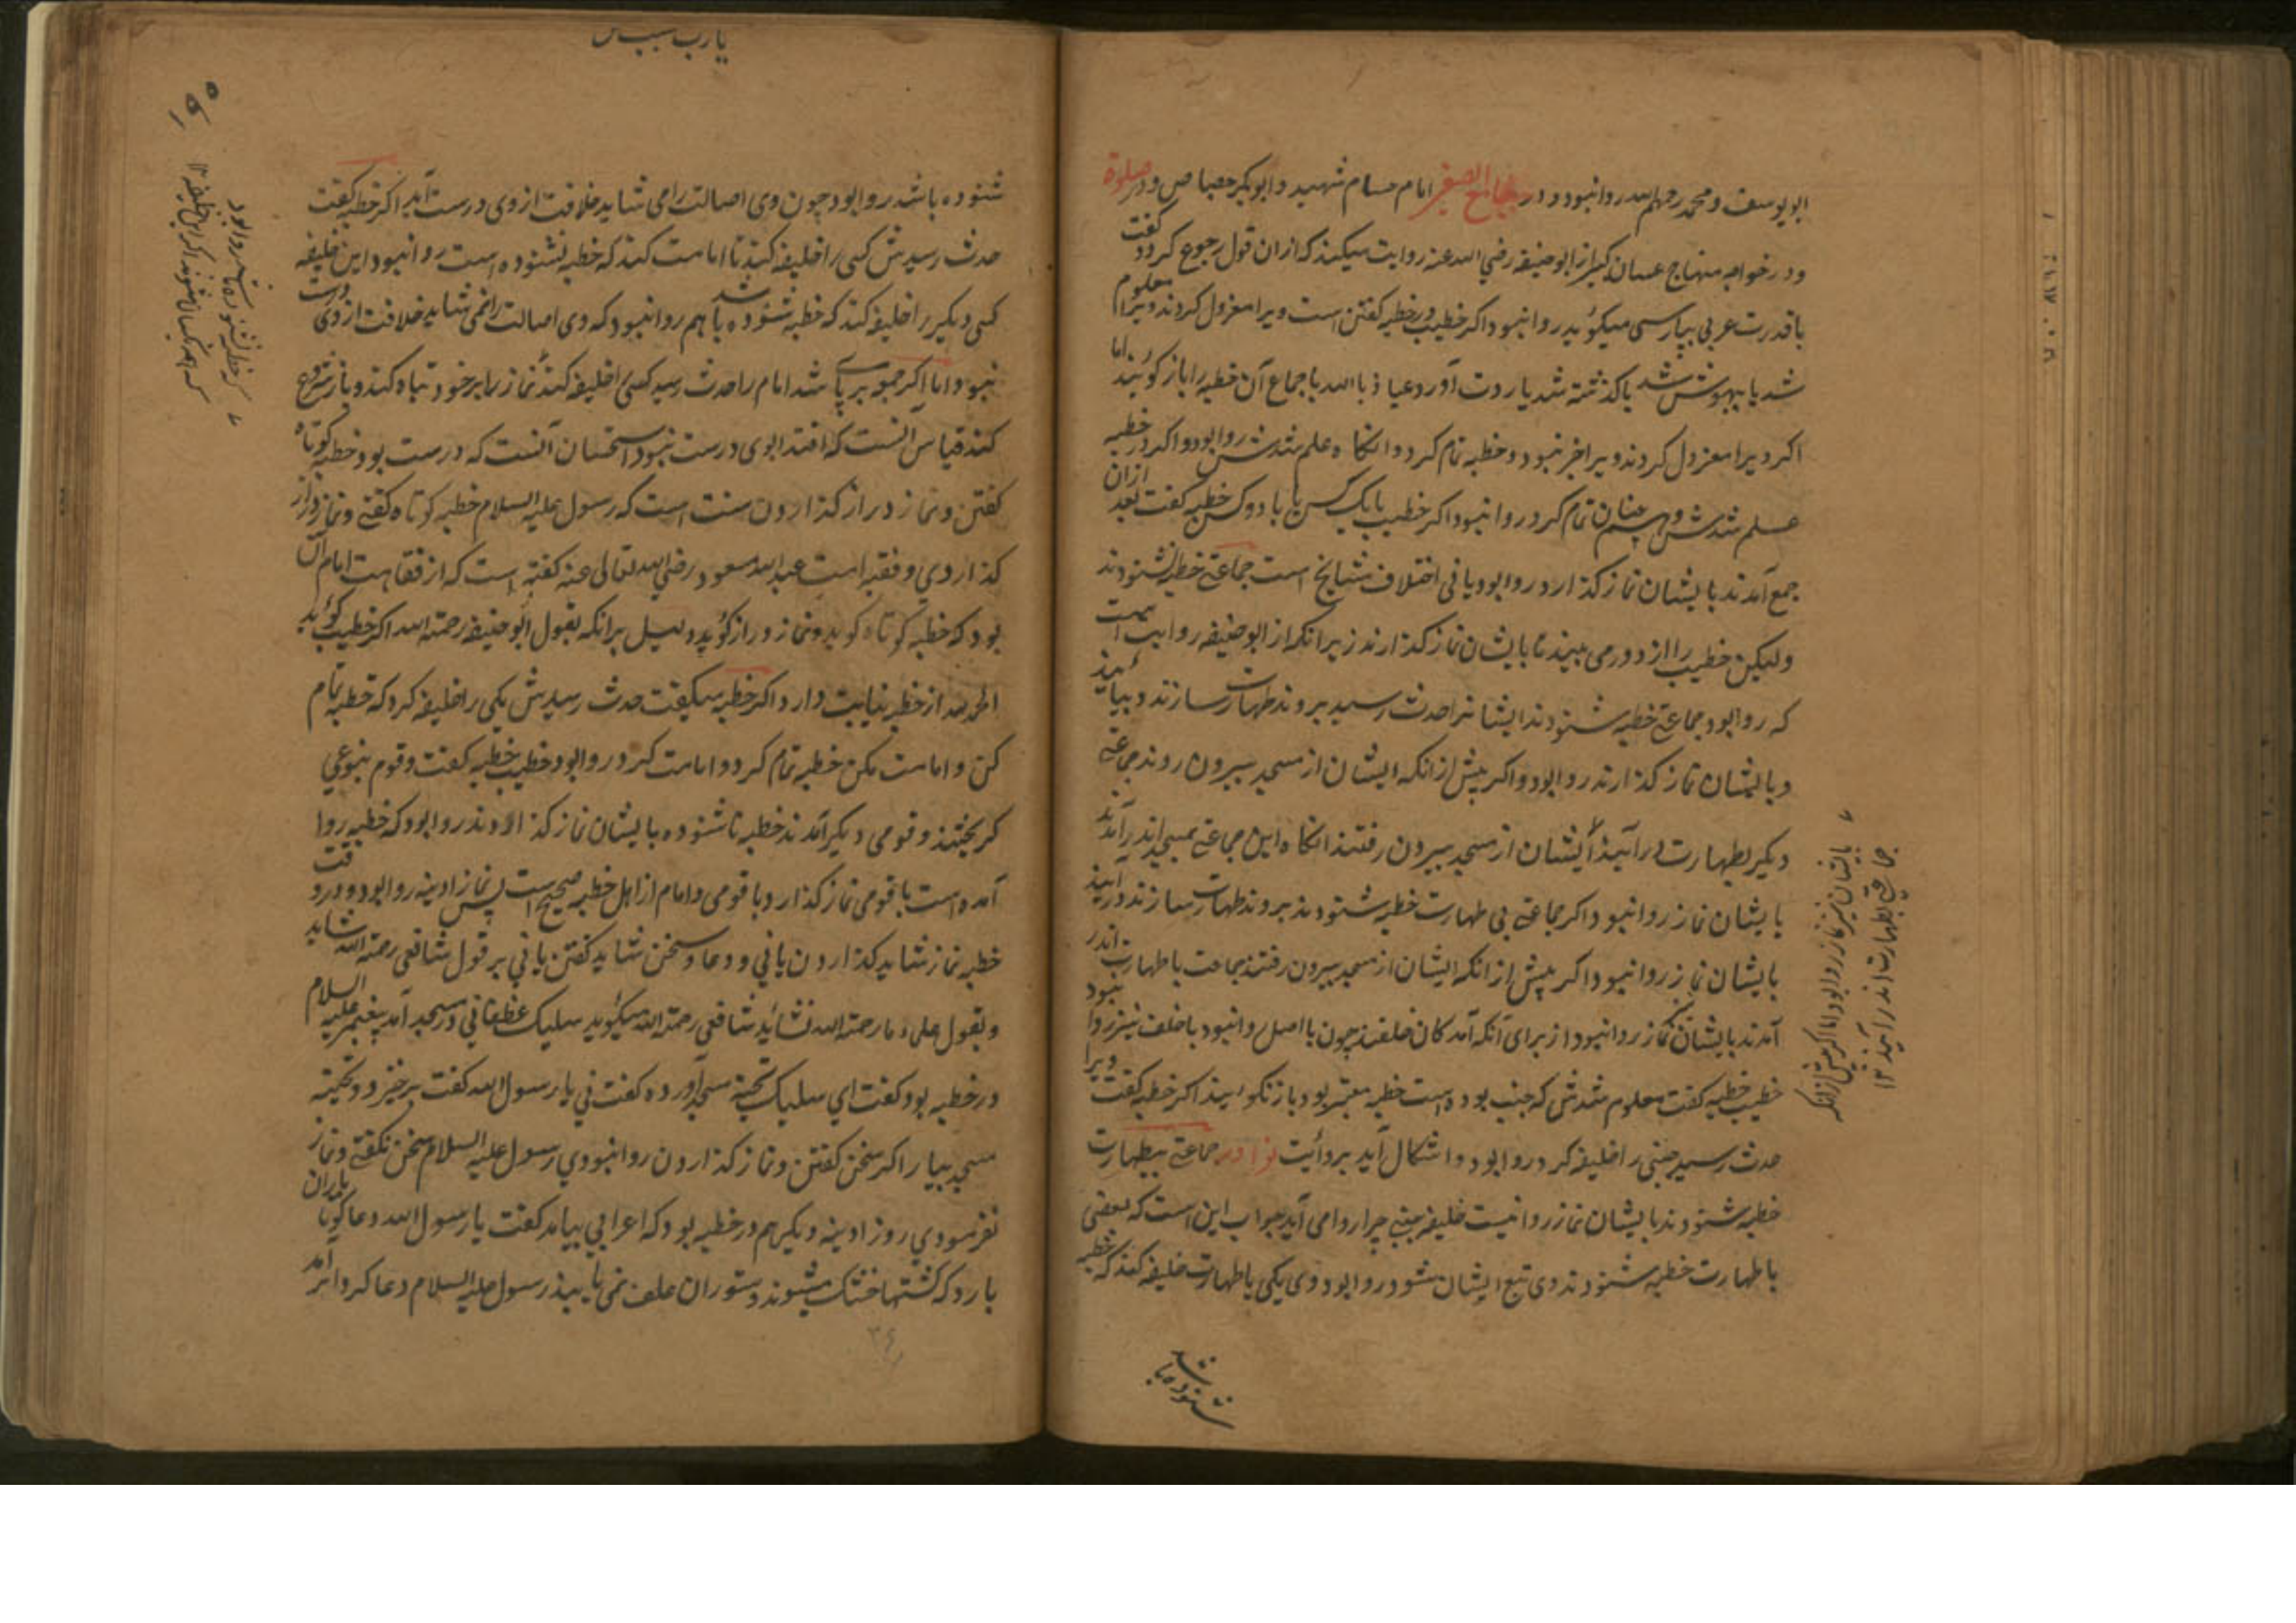 ابو یوسف و محمد رحمهم الله روا نبود و در جامع الصغیر امام حسام شهید و ابوبکر جصاص و در صلوة
ودر خواجه منهاج عسان کبیر از ابو حنیفه رضی الله عنه روایت میکند که ازان قول رجوع کرد و گفت
با قدرت عربی بپارسی میگوید روا نبود اگر خطیب در خطبه گفتن است ویرا معزول کردند ویرا معلوم
شد یا بیهوش شد یا کذشته شد یا ردت آورد عیاذ بالله باجماع آن خطبه را باز گویند اما
اگر ویرا معزول کردند ویرا خبر نبود و خطبه تمام کرد و انگاه علم شدش روا بود و اگر در خطبه
علم شدش و همچنان تمام کرد روا نبود اگر خطیب با یک کس یا با دو کس خطبه گفت بعد ازان
جمع آمدند بایشان نماز گذارد روا بود یا نی اختلاف مشایخ است جماعتی خطبه نشنودند
ولیکن خطیب را از دور می بینند تا بایشان نماز گذارند زیرا نکه از ابو حنیفه روایت است
که روا بود جماعتی خطبه شنودند ایشانرا حدث رسید بروند طهارت سازند و بیایند
و بایشان نماز گذارند روا بود و اگر پیش از انکه ایشان از مسجد بیرون روند جماعتی
دیگر بطهارت در آیند ایشان از مسجد بیرون رفتند انگاه این جماعتی بمسجد اندر آمدند
بایشان نماز روا نبود اگر جماعتی بی طهارت خطبه شنودند بروند طهارت سازند در آیند
بایشان نماز روا نبود اگر پیش از انکه ایشان از مسجد بیرون رفتند جماعت با طهارت اندر
آمدند بایشان نماز روا نبود از برای آنکه آمدکان خلفند چون با اصل روا نبود با خلف نیز روا نبود
خطیب خطبه گفت معلوم شدش که جنب بوده است خطبه معتبر بود باز نگویند اگر خطبه گفت ویرا
حدث رسید جنبی را خلیفه کرد روا بود و اشکال آید بروایت نوادر جماعتی بیطهارت
خطبه شنودند بایشان نماز روا نیست خلیفه جنبی چرا روا می آید جواب این است که بعضی
با طهارت خطبه شنودند وی تبع ایشان شود روا بود وی یکی با طهارت خلیفه کند که خطبه
شنوده باشد
بایشان نیز نماز روا بود اما اگر پیش از انکه
جماعتی بطهارت اندر آیند ۱۲
یا رب سبب
شنوده باشد روا بود چون وی اصالت را می شاید خلافت از وی درست آید اگر خطبه گفت
حدث رسیدش کسی را خلیفه کند تا امامت کند که خطبه نشنوده است روا نبود این خلیفه
کسی دیگر را خلیفه کند که خطبه شنوده باشد هم روا نبود که وی اصالت را نمی شاید خلافت از وی درست
نبود اما اگر جمعه بر پای شد امام را حدث رسید کسی را خلیفه کند نماز را بر خود تباه کند و باز شروع
کند قیاس آنست که اقتدا بوی درست نبود استحسان آنست که درست بود خطبه کوتاه
گفتن و نماز دراز گذاردن سنت است که رسول علیه السلام خطبه کوتاه گفتی و نماز دراز
گذاردی و فقیه امت عبد الله مسعود رضی الله تعالی عنه گفته است که از فقاهت امام آن
بود که خطبه کوتاه گوید و نماز دراز گوید دلیل برانکه بقول ابو حنیفه رحمة الله اگر خطیب گوید
الحمد لله از خطبه نیابت دارد اگر خطبه میگفت حدث رسیدش یکی را خلیفه کرد که خطبه تمام
کن و امامت بکن خطبه تمام کرد و امامت کرد روا بود خطیب خطبه گفت و قوم بنوعی
گریختند و قومی دیگر آمدند خطبه نا شنوده بایشان نماز گذاردند روا بود که خطبه روا
آمده است با قومی نماز گذارد و با قومی و امام از اهل خطبه صحیح است پس نماز ادینه روا بود و در وقت
خطبه نماز شاید گذاردن یا نی و دعا و سخن شاید گفتن یا نی بر قول شافعی رحمة الله شاید
و بقول علماء ما رحمة الله نشاید شافعی رحمة الله میگوید سلیک غطفانی در مسجد آمد پیغمبر علیه السلام
در خطبه بود گفت ای سلیک تحیة مسجد آورده گفت نی یا رسول الله گفت برخیز و تحیة
مسجد بیار اگر سخن گفتن و نماز گذاردن روا نبودی رسول علیه السلام سخن نگفتی و نماز
نفرمودی روز ادینه دیگر هم در خطبه بود که اعرابی بیامد گفت یا رسول الله دعا گو تا باران
بارد که کشتها خشک میشوند و ستوران علف نمی یابند رسول علیه السلام دعا کرد ابر آمد
که خطبه نشنوده باشد روا بود
۳۴